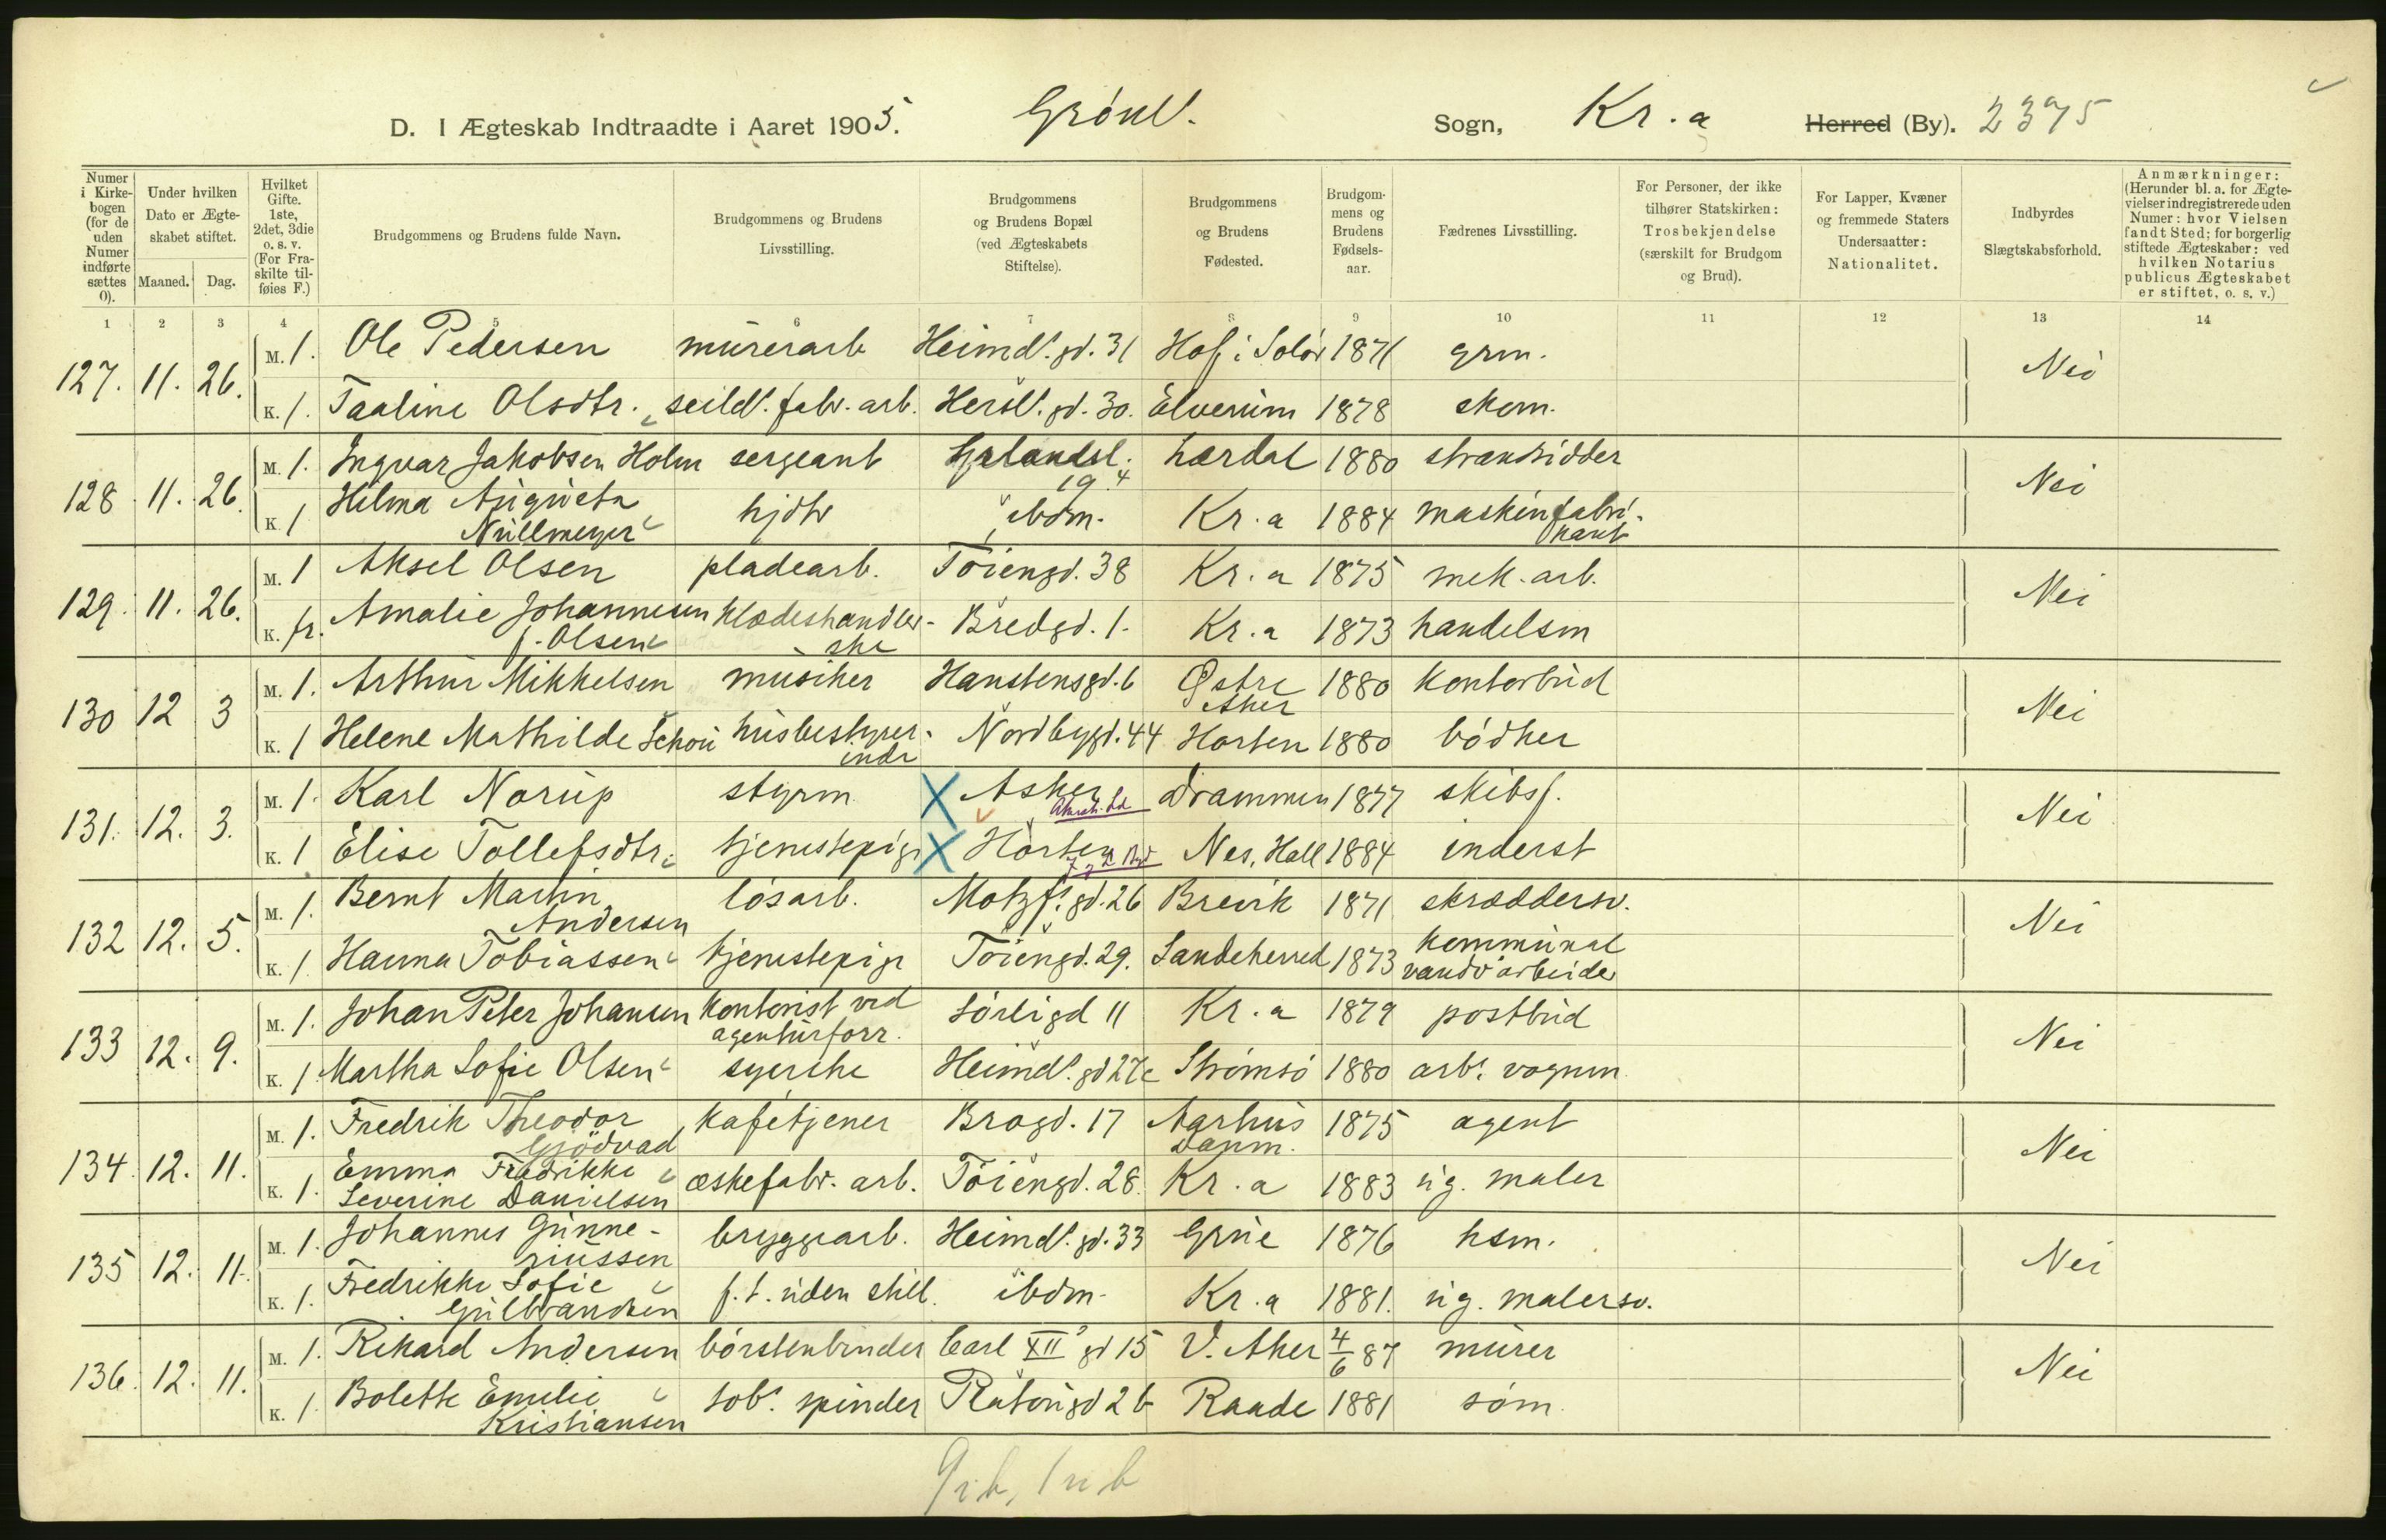 D. I Ægteskab Indtraadte i Aaret 1905. Grønl. Sogn, Kr.a Herred (By). 2375
Numer i Kirkebogen (for de uden Numer indførte sættes 0).
Under hvilken Dato er Ægteskabet stiftet.
Maaned. Dag.
Hvilket Gifte. 1ste, 2det, 3die o. s. v. (For Fraskilte tilføies F.)
Brudgommens og Brudens fulde Navn.
Brudgommens og Brudens Livsstilling.
Brudgommens og Brudens Bopæl (ved Ægteskabets Stiftelse).
Brudgommens og Brudens Fødested.
Brudgommens og Brudens Fødselsaar.
Fædrenes Livsstilling.
For Personer, der ikke tilhører Statskirken: Trosbekjendelse (særskilt for Brudgom og Brud).
For Lapper, Kvæner og fremmede Staters Undersaatter: Nationalitet.
Indbyrdes Slægtskabsforhold.
Anmærkninger: (Herunder bl. a. for Ægtevielser indregistrerede uden Numer: hvor Vielsen fandt Sted; for borgerlig stiftede Ægteskaber: ved hvilken Notarius publicus Ægteskabet er stiftet, o. s. v.)
1 2 3 4 5 6 7 8 9 10 11 12 13 14
127. 11. 26. M. 1. Ole Pedersen murerarb Heimd.gd. 31 Hof i Solør 1871 grm. Nei
K. 1. Taaline Olsdtr. seild.fabr.arb. Hersl.gd. 30. Elverum 1878 skom.
128 11. 26. M. 1. Ingvar Jakobsen Holm sergeant Grlandsl. 19.4 Lærdal 1880 strandsidder Nei
K. 1 Hilma Augusta Nullmeyer hjdtr ibdm. Kr.a 1884 maskinfabrikant
129. 11. 26. M. 1 Aksel Olsen pladearb. Tøiengd. 38 Kr.a 1875 mek.arb. Nei
K. fr. Amalie Johannesen f. Olsen klædeshandlerske Bredgd. 1. Kr.a 1873 handelsm
130 12 3 M. 1. Arthur Mikkelsen musiker Hanstensgd. 6 Østre Aker 1880 kontorbud Nei
K. 1 Helene Mathilde Schou husbestyrerinde Nordbygd. 44 Horten 1880 bødker
131. 12. 3. M. 1. Karl Norup styrm X Asker Drammen 1877 skibsf. Nei
K. 1 Elise Tollefsdtr. tjenestepige X Horten Nes, Hall 1884 inderst
132 12. 5. M. 1. Bernt Martin Andersen løsarb. Motzf.gd. 26 Brevik 1871 skræddersv. Nei
K. 1 Hanna Tobiassen tjenestepige Tøiengd. 29. Sandeherred 1873 kommunal vandv arbeider
133 12. 9. M. 1. Johan Peter Johansen kontorist ved agenturforr. Sørligd 11 Kr.a 1879 postbud Nei
K. 1 Martha Sofie Olsen syerske Heimd.gd 27c Strømsø 1880 arb. vognm
134 12. 11. M. 1. Fredrik Theodor Gjødvad kafétjener Brogd. 17 Aarhus Danm. 1875 agent Nei
K. 1. Emma Fredrikke Severine Danielsen æskefabr. arb. Tøiengd. 28. Kr.a 1883 ug. maler
135 12. 11. M. 1. Johannes Gunneriussen bryggearb. Heimd.gd. 33 Grue 1876 hsm. Nei
K. 1. Fredrikke Sofie Gulbrandsen f.t. uden still. ibdm. Kr.a 1881. ug. malersv.
136. 12. 11. M. 1. Rikard Andersen børstenbinder Carl XII gd 15 V. Aker 4/6 87 murer Nei
K. 1. Bolette Emilie Kristiansen tob. spinder Platougd 26 Raade 1881 søm